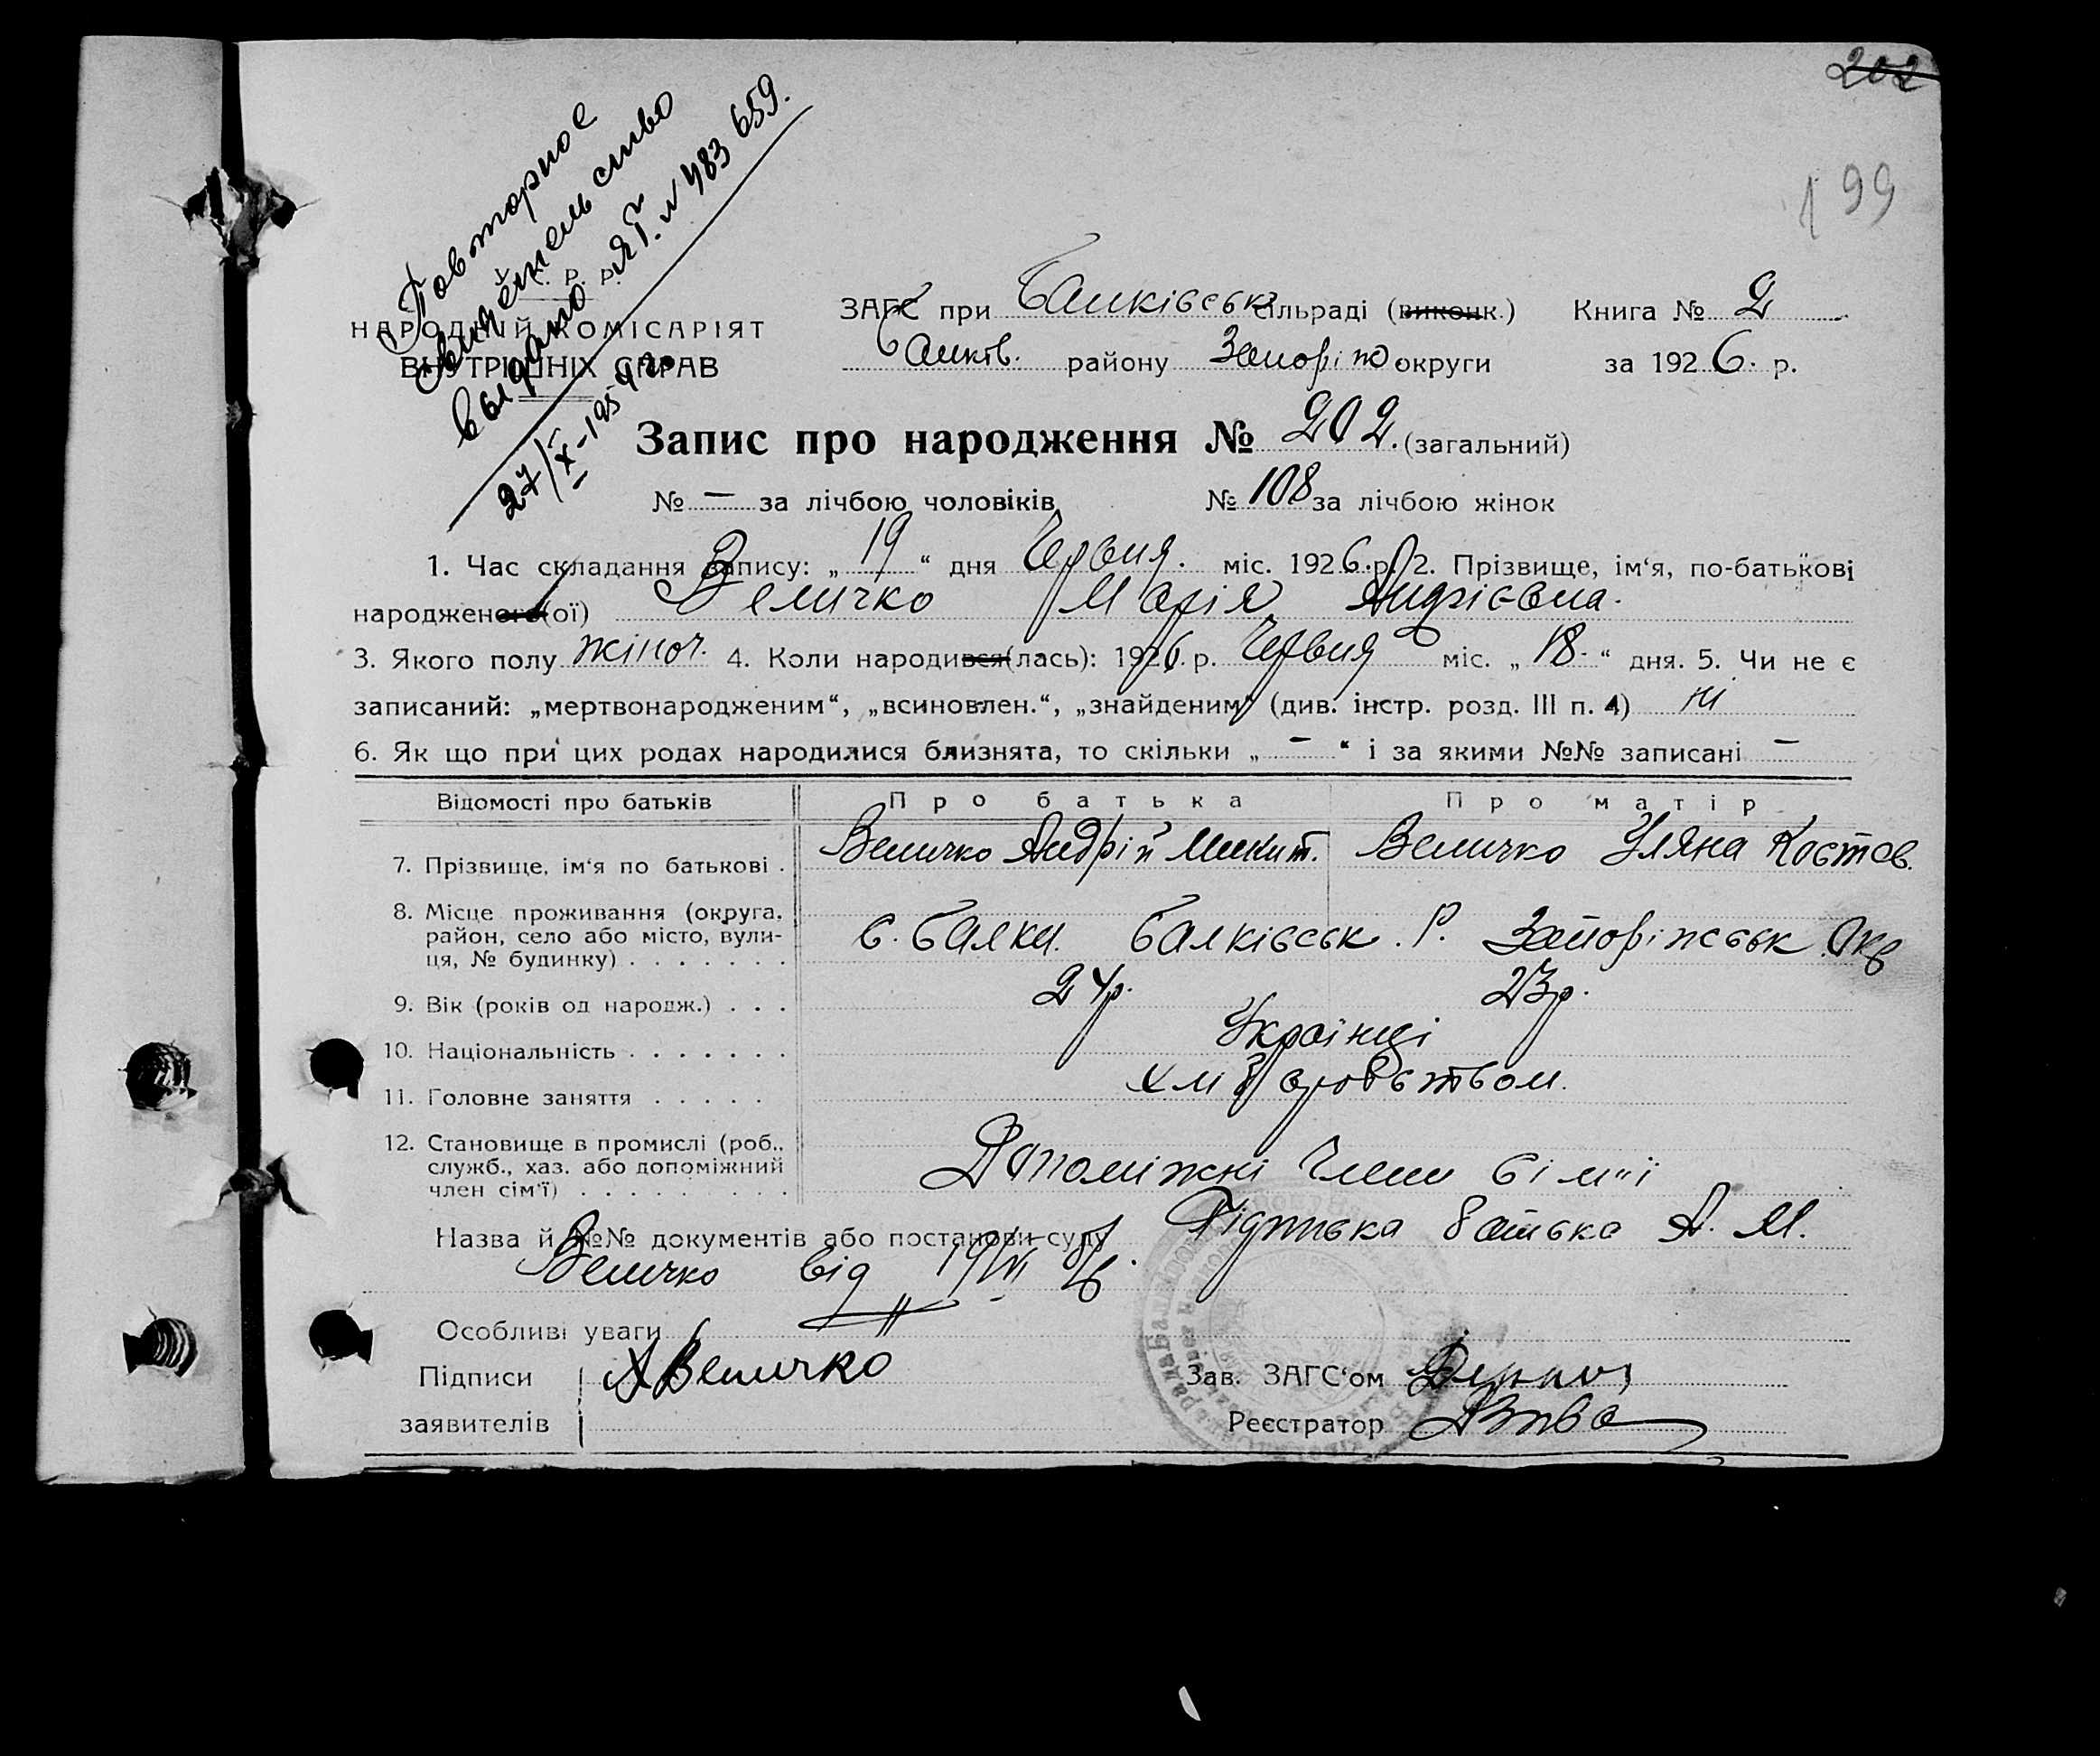 202
199
Повторное
свидетельство
выдано ЯТ. № 483 659.
27/X-1954 г.
У. С. Р. Р.
НАРОДНИЙ КОМІСАРІЯТ
ВНУТРІШНІХ СПРАВ
ЗАГС при Балківськ сільраді (виконк.) Книга № 2
Балків. району Запоріж округи за 1926. р.
Запис про народження № 202. (загальний)
№ — за лічбою чоловіків № 108 за лічбою жінок
1. Час складання запису: „ 19 “ дня Червня. міс. 1926. р. 2. Прізвище, ім‘я, по-батькові
народженого(ої) Величко Марія Андрієвна.
3. Якого полу жіноч. 4. Коли народився(лась): 1926. р. Червня міс. „ 18. “ дня. 5. Чи не є
записаний: „мертвонародженим“, „всиновлен.“, „знайденим“ (див. інстр. розд. III п. 4) ні
6. Як що при цих родах народилися близнята, то скільки „ — “ і за якими №№ записані —
Відомості про батьків Про батька Про матір
7. Прізвище, ім‘я по батькові . Величко Андрій Микит. Величко Уляна Костов.
8. Місце проживання (округа,
район, село або місто, вули-
ця, № будинку) . . . . . . . с. Балки. Балківськ. Р. Запоріжськ Окр
9. Вік (років од народж.) . . . 24р. 23р.
10. Національність . . . . . . . Українці
11. Головне заняття . . . . .
12. Становище в промислі (роб.,
служб., хаз. або допоміжний
член сім‘ї) . . . . . . . . . Допоміжні Члени Сім"ї
Назва й №№ документів або постанови суду Підписка батька А. М.
Величко від 19/VI 26р.
Особливі уваги
Підписи АВеличко Зав. ЗАГС‘ом
заявителів Реєстратор